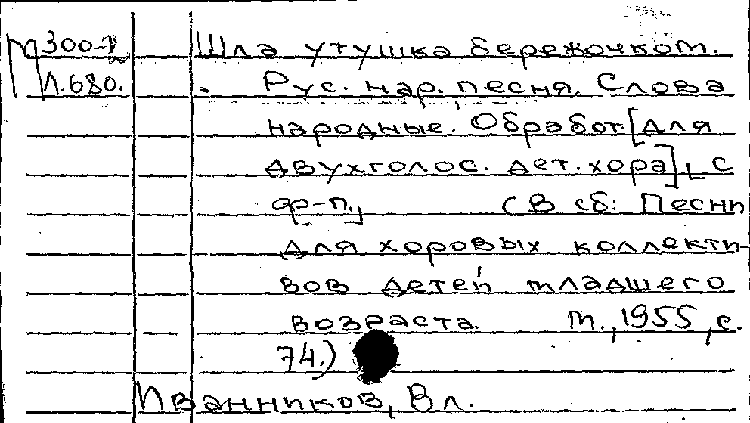 П300-2 Шла утушка бережочком.
Л.680. Рус. нар. песня. Слова
народные. Обработ[для
двухголос. дет. хора] с
ф-п., (В сб: Песни
для хоровых коллекти-
вов детей младшего
возраста. М., 1955, с.
74.)
Иванников, Вл.